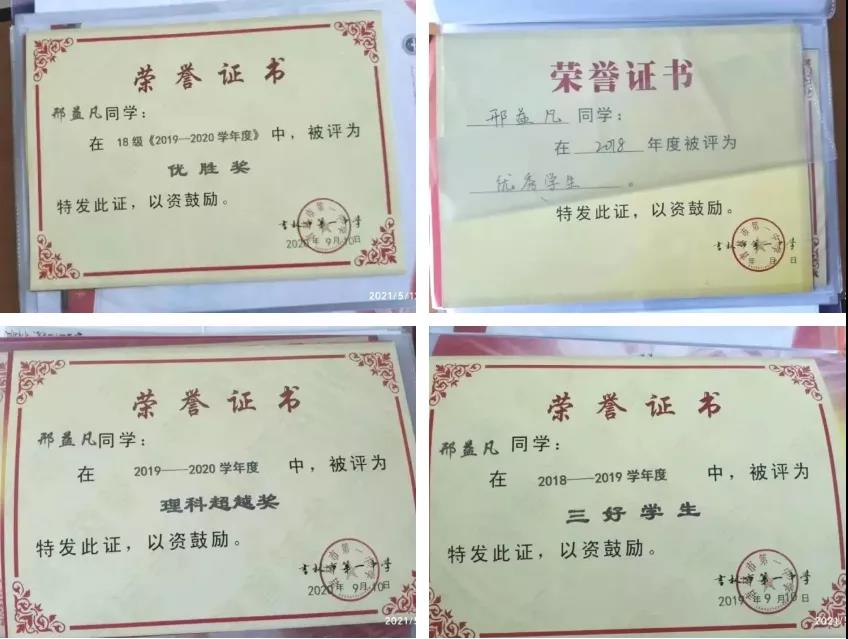 荣誉证书
邢益凡同学：
在 18级《2019—2020学年度》中，被评为
优胜奖
特发此证，以资鼓励。
吉林市第一中学
2020年 9月10日
2021/5/12
荣誉证书
邢益凡 同学：
在 2018 年度被评为
优秀学生。
特发此证，以资鼓励。
吉林市第一中学
年 月 日
荣誉证书
邢益凡同学：
在 2019——2020学年度 中，被评为
理科超越奖
特发此证，以资鼓励。
吉林市第一中学
2020年 9月10日
2021/5
荣誉证书
邢益凡 同学：
在 2018——2019学年度 中，被评为
三好学生
特发此证，以资鼓励。
吉林市第一中学
2019年9月10日
2021/5